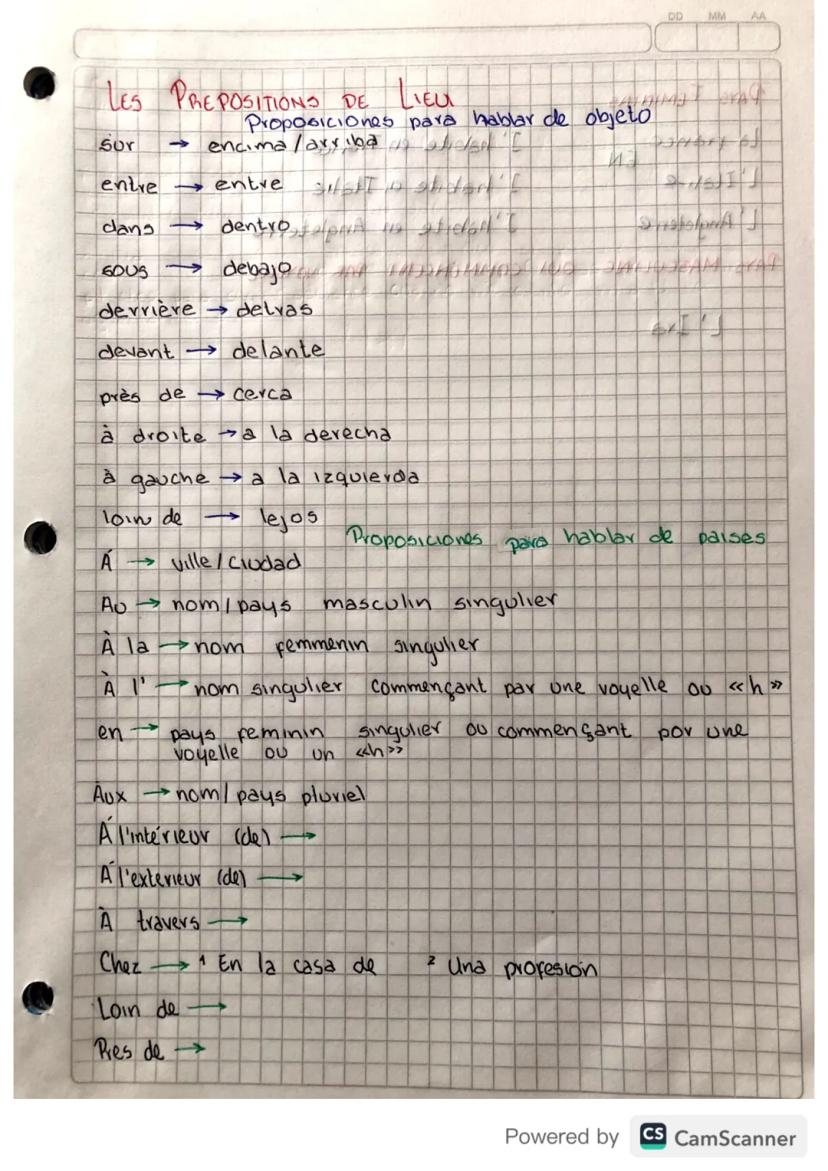 DD MM AA
LES PREPOSITIONS DE LIEU
Proposiciones para hablar de objeto
sur → encima/arriba
entre → entre
dans → dentro
sous → debajo
derrière → detras
devant → delante
près de → cerca
à droite → a la derecha
à gauche → a la izquierda
loin de → lejos
Proposiciones para hablar de paises
Á → ville/ciudad
Au → nom/pays masculin singulier
À la → nom femmenin singulier
À l' → nom singulier commençant par une voyelle ou «h»
en → pays feminin singulier ou commençant por une
voyelle ou un «h»
Àux → nom/pays pluriel
Á l'intérieur (de) →
Á l'exterieur (de) →
À travers →
Chez → 1 En la casa de 2 Una profesión
Loin de →
Pres de →
Powered by CS CamScanner